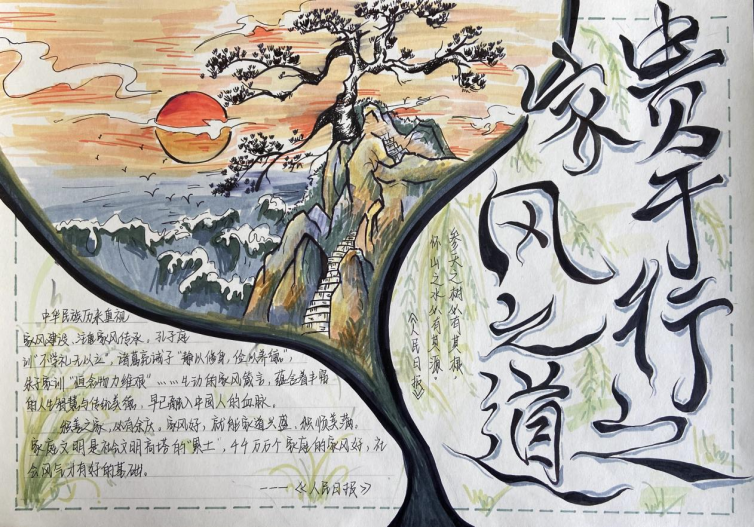 家风之道
贵于行之
参天之树必有其根，
怀山之水必有其源。
《人民日报》
中华民族历来重视
家风建设，注重家风传承。孔子庭
训“不学礼无以立”，诸葛亮诫子“静以修身，俭以养德”，
朱子家训“恒念物力维艰”……生动的家风箴言，蕴含着丰富
的人生智慧与传统美德，早已融入中国人的血脉。
积善之家，必有余庆。家风好，就能家道兴盛、和顺美满。
家庭文明是社会文明高塔的“累土”，千千万万个家庭的家风好，社
会风气才有好的基础。
----《人民日报》